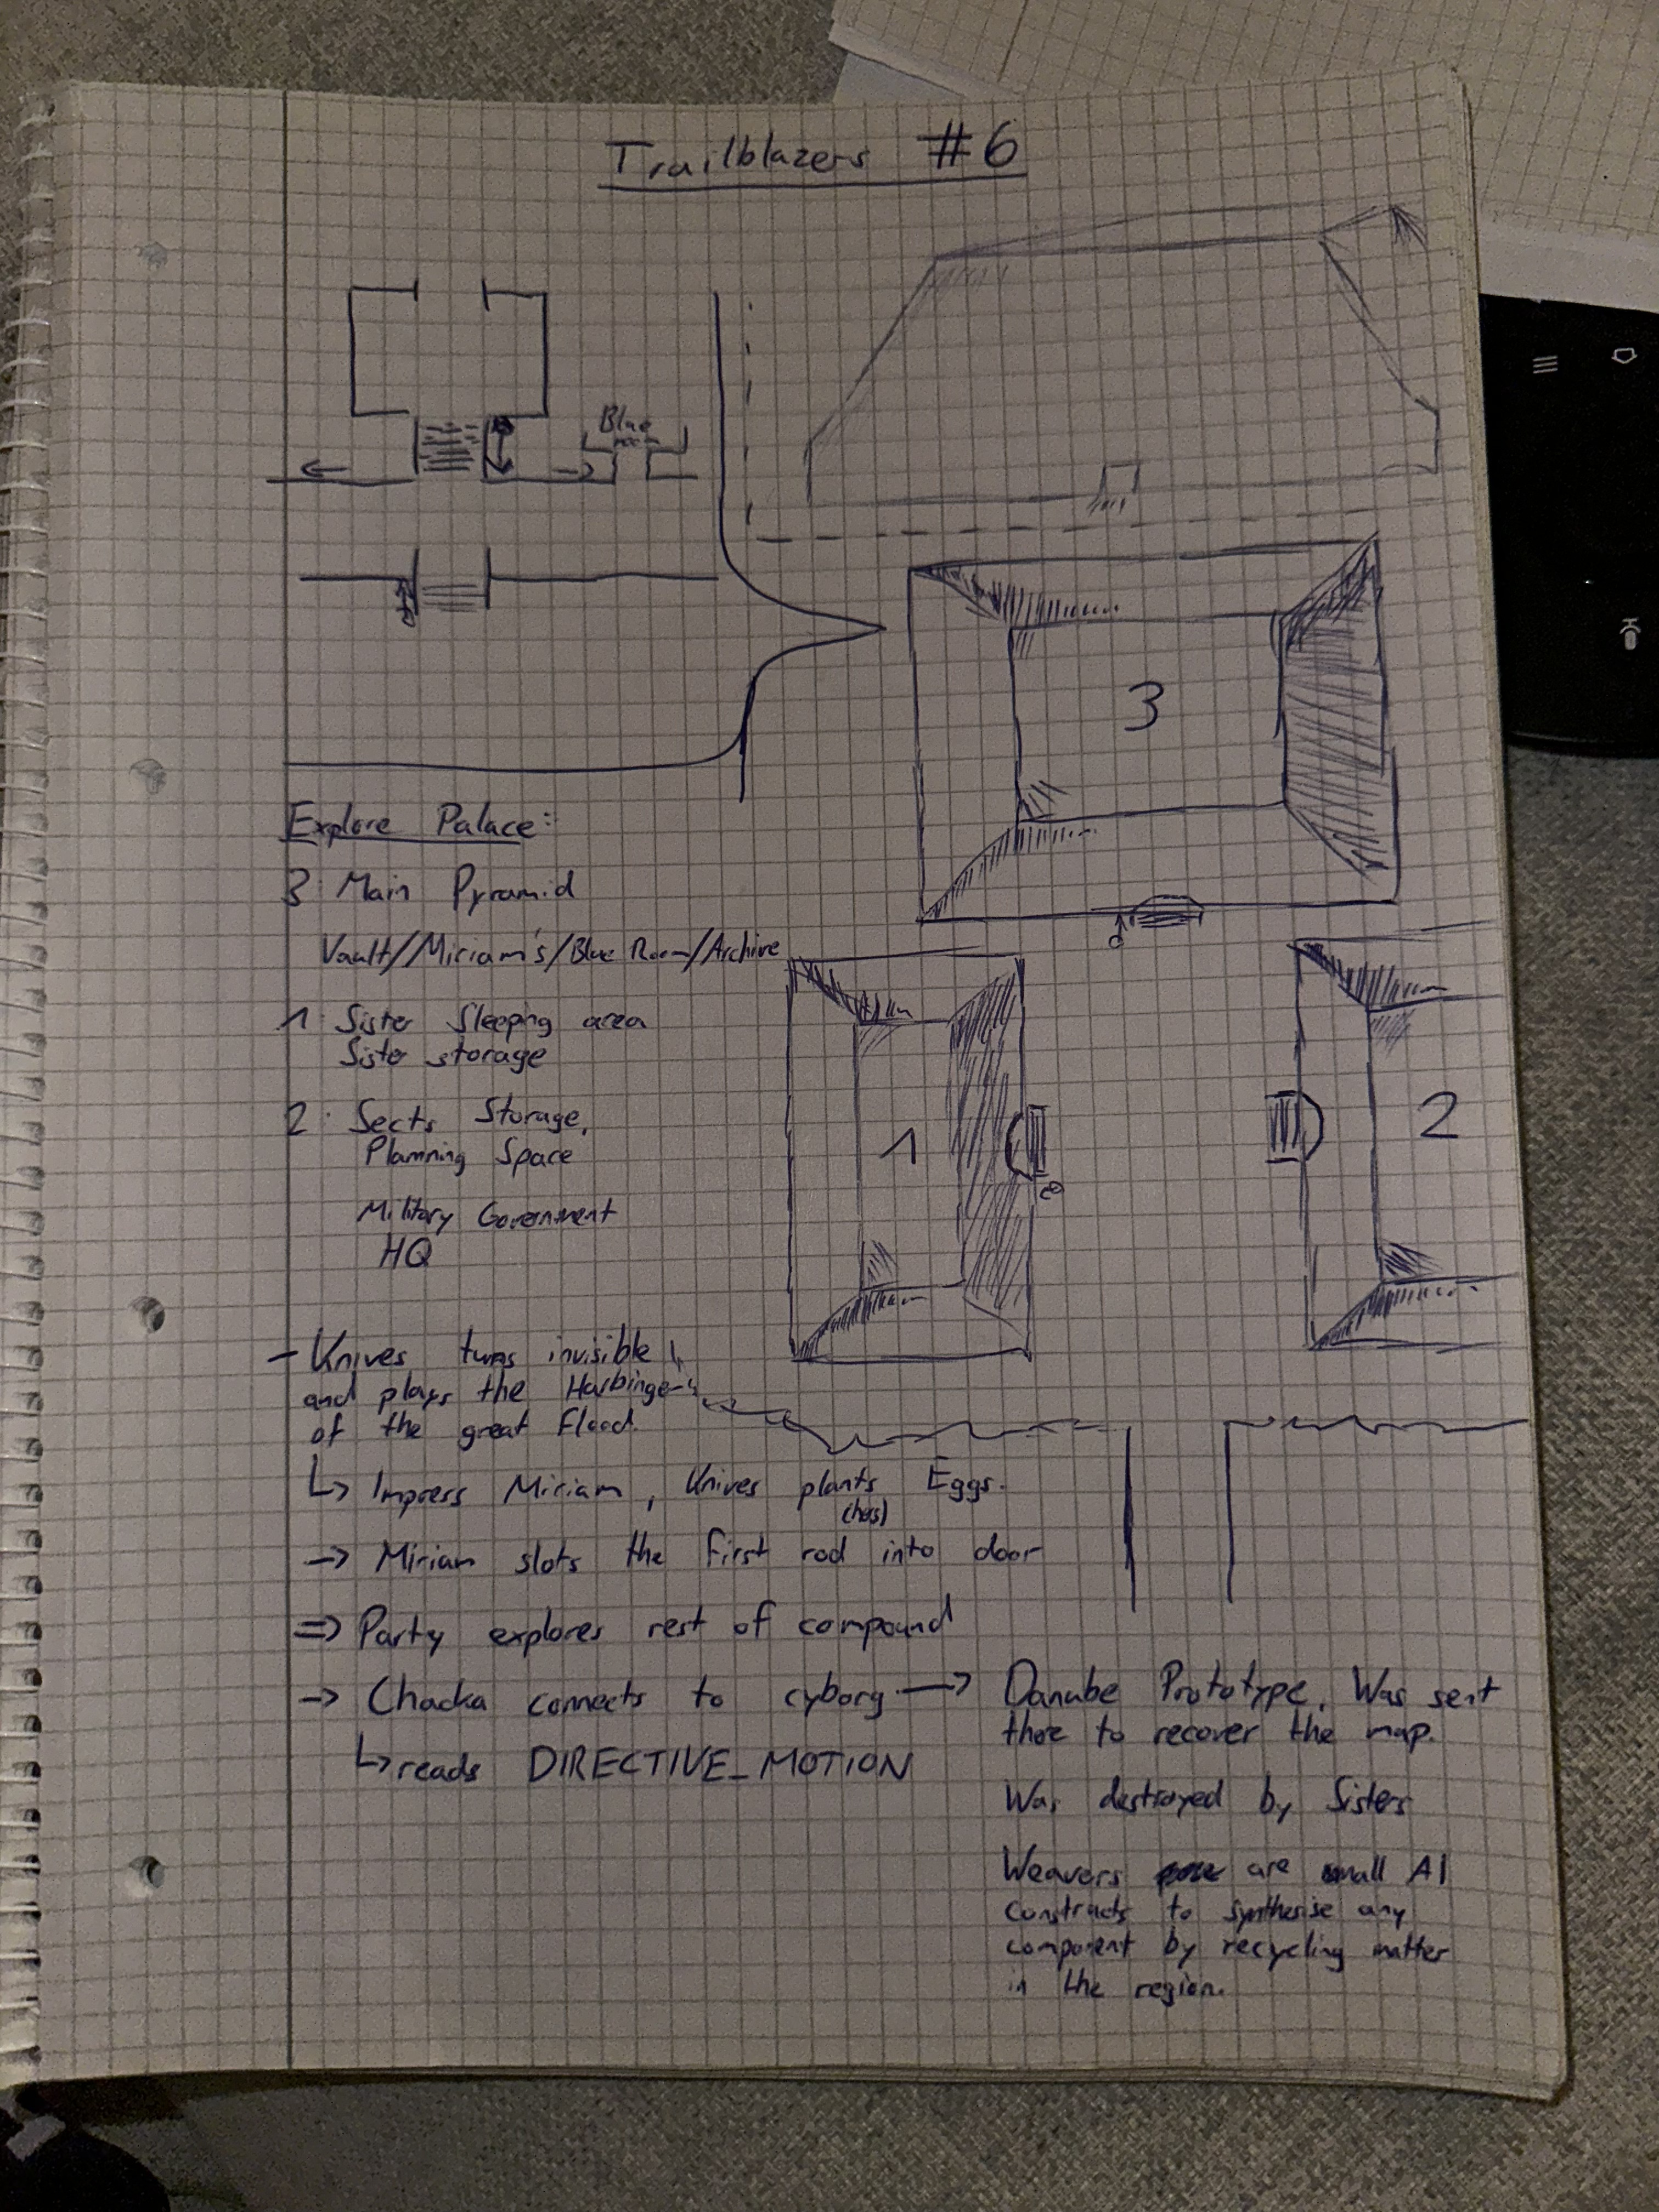 Trailblazers #6
Blue
room
3
Explore Palace:
3: Main Pyramid
Vault/Miriam's/Blue Room/Archive
1: Sister Sleeping area
Sister storage
2: Sects Storage,
Planning Space
Military Government
HQ
1
2
- Knives turns invisible
and plays the Harbinger
of the great flood.
↳ Impress Miriam, Knives plants Eggs.
(has)
→ Miriam slots the first rod into door
⇒ Party explores rest of compound
→ Chacka connects to cyborg → Danube Prototype. Was sent
there to recover the map.
↳ reads DIRECTIVE_MOTION
Was destroyed by Sisters
Weavers are small AI
constructs to synthesise any
component by recycling matter
in the region.